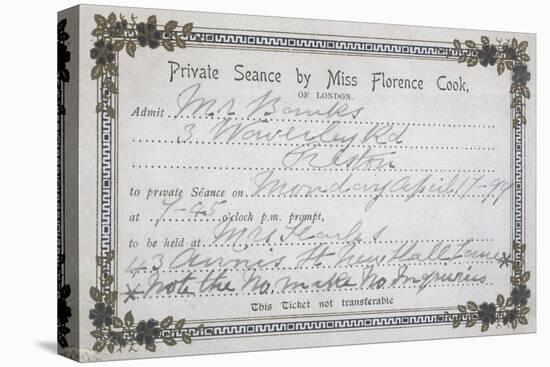 Private Seance by Miss Florence Cook,
OF LONDON.
Admit Mr Banks
3 Waverley Rd
Preston
to private Séance on Monday April 17-99
at 7-45 o'clock p.m. prompt,
to be held at Mrs Searles
43 Annis St New Hall Lane*
* Note the No. make No Inquiries.
This Ticket not transferable